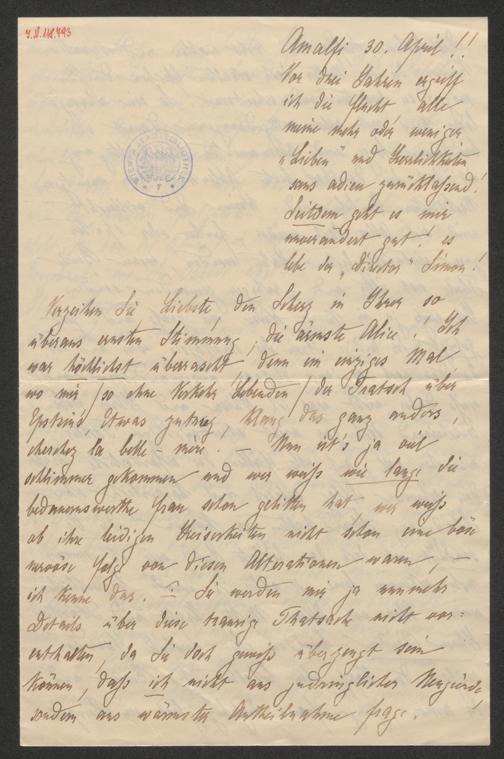 Amalfi 30. April!!
Vor drei Jahren ergriff
ich die Flucht alle
meine mehr oder weniger
„Lieben" und Herrlichkeiten
sans adieu zurücklassend!
Seitdem geht es mir
unverändert gut! es
lebe der „Director" Simon!
Verzeihen Sie Liebste, den Scherz in Ihrer so
überaus ernsten Stimmung, die ärmste Alice! Ich
war höchlichst überrascht denn ein einziges Mal
wo mir /so ohne Verkehr Lebenden/ der Tratsch über
Epsteins, Etwas zutrug, klang das ganz anders,
cherchez la belle-mère. — Nun ist's ja viel
schlimmer gekommen und wer weiß wie lange die
bedauernswerthe Frau schon gelitten hat wer weiß
ob ihre leidigen Heiserkeiten nicht schon eine böse
nervöse Folge von diesen Alterationen waren, —
ich kenne das. — Sie werden mir ja nunmehr
Details über diese traurige Thatsache nicht vor-
enthalten, da Sie doch gewiß überzeugt sein
können, daß ich nicht aus zudringlicher Neugierde,
sondern aus wärmster Antheilnahme frage.